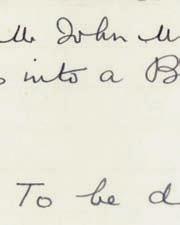 Mr John M
s into a B
To be d